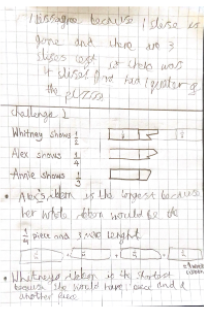 I disagree because 1 slise is
gone and there are 3
slises left there was
4 slises and had 1 quarter of
the pizza
challenge 2
Whitney shows 1/2
Alex shows 1/4
Annie shows 1/3
• Alex's ribbon is the longest because
her whole ribbon would be the
1/4 piece and 3 more lenght
• Whitney's ribbon is the shortest
because she would have 1 piece and
another piece